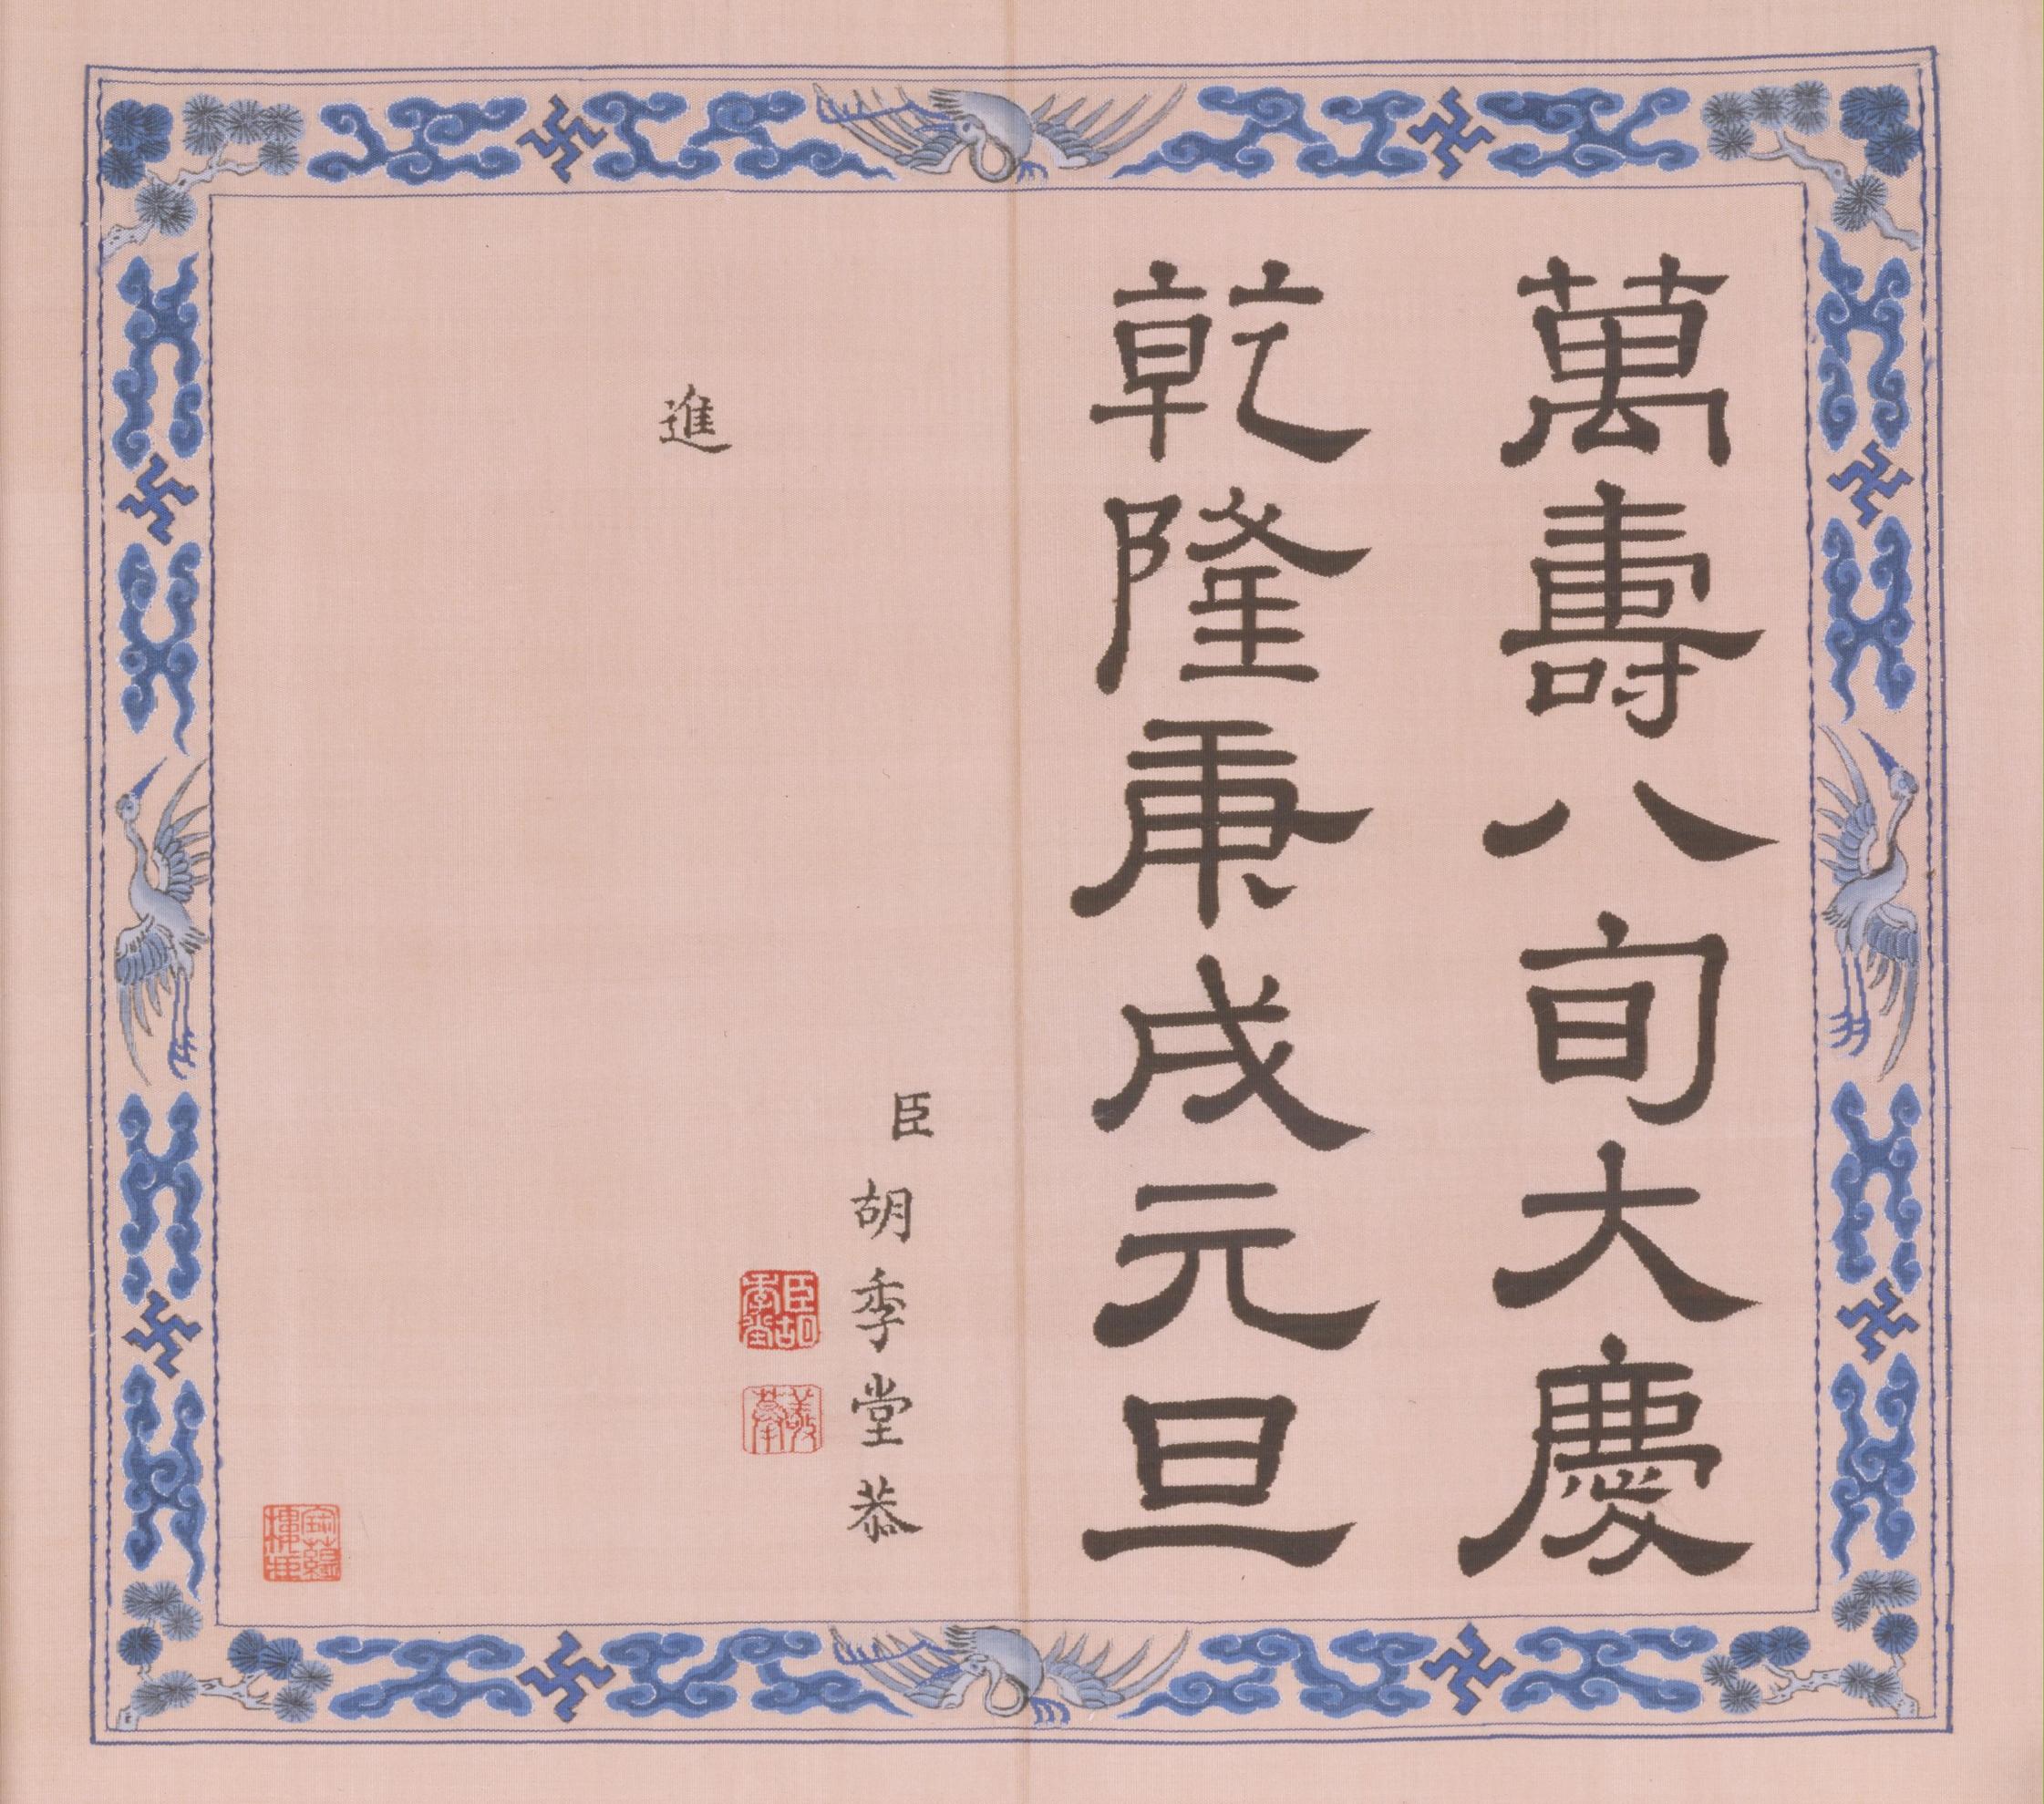 萬壽八旬大慶
乾隆庚戌元旦
臣胡季堂恭
進
臣胡季堂